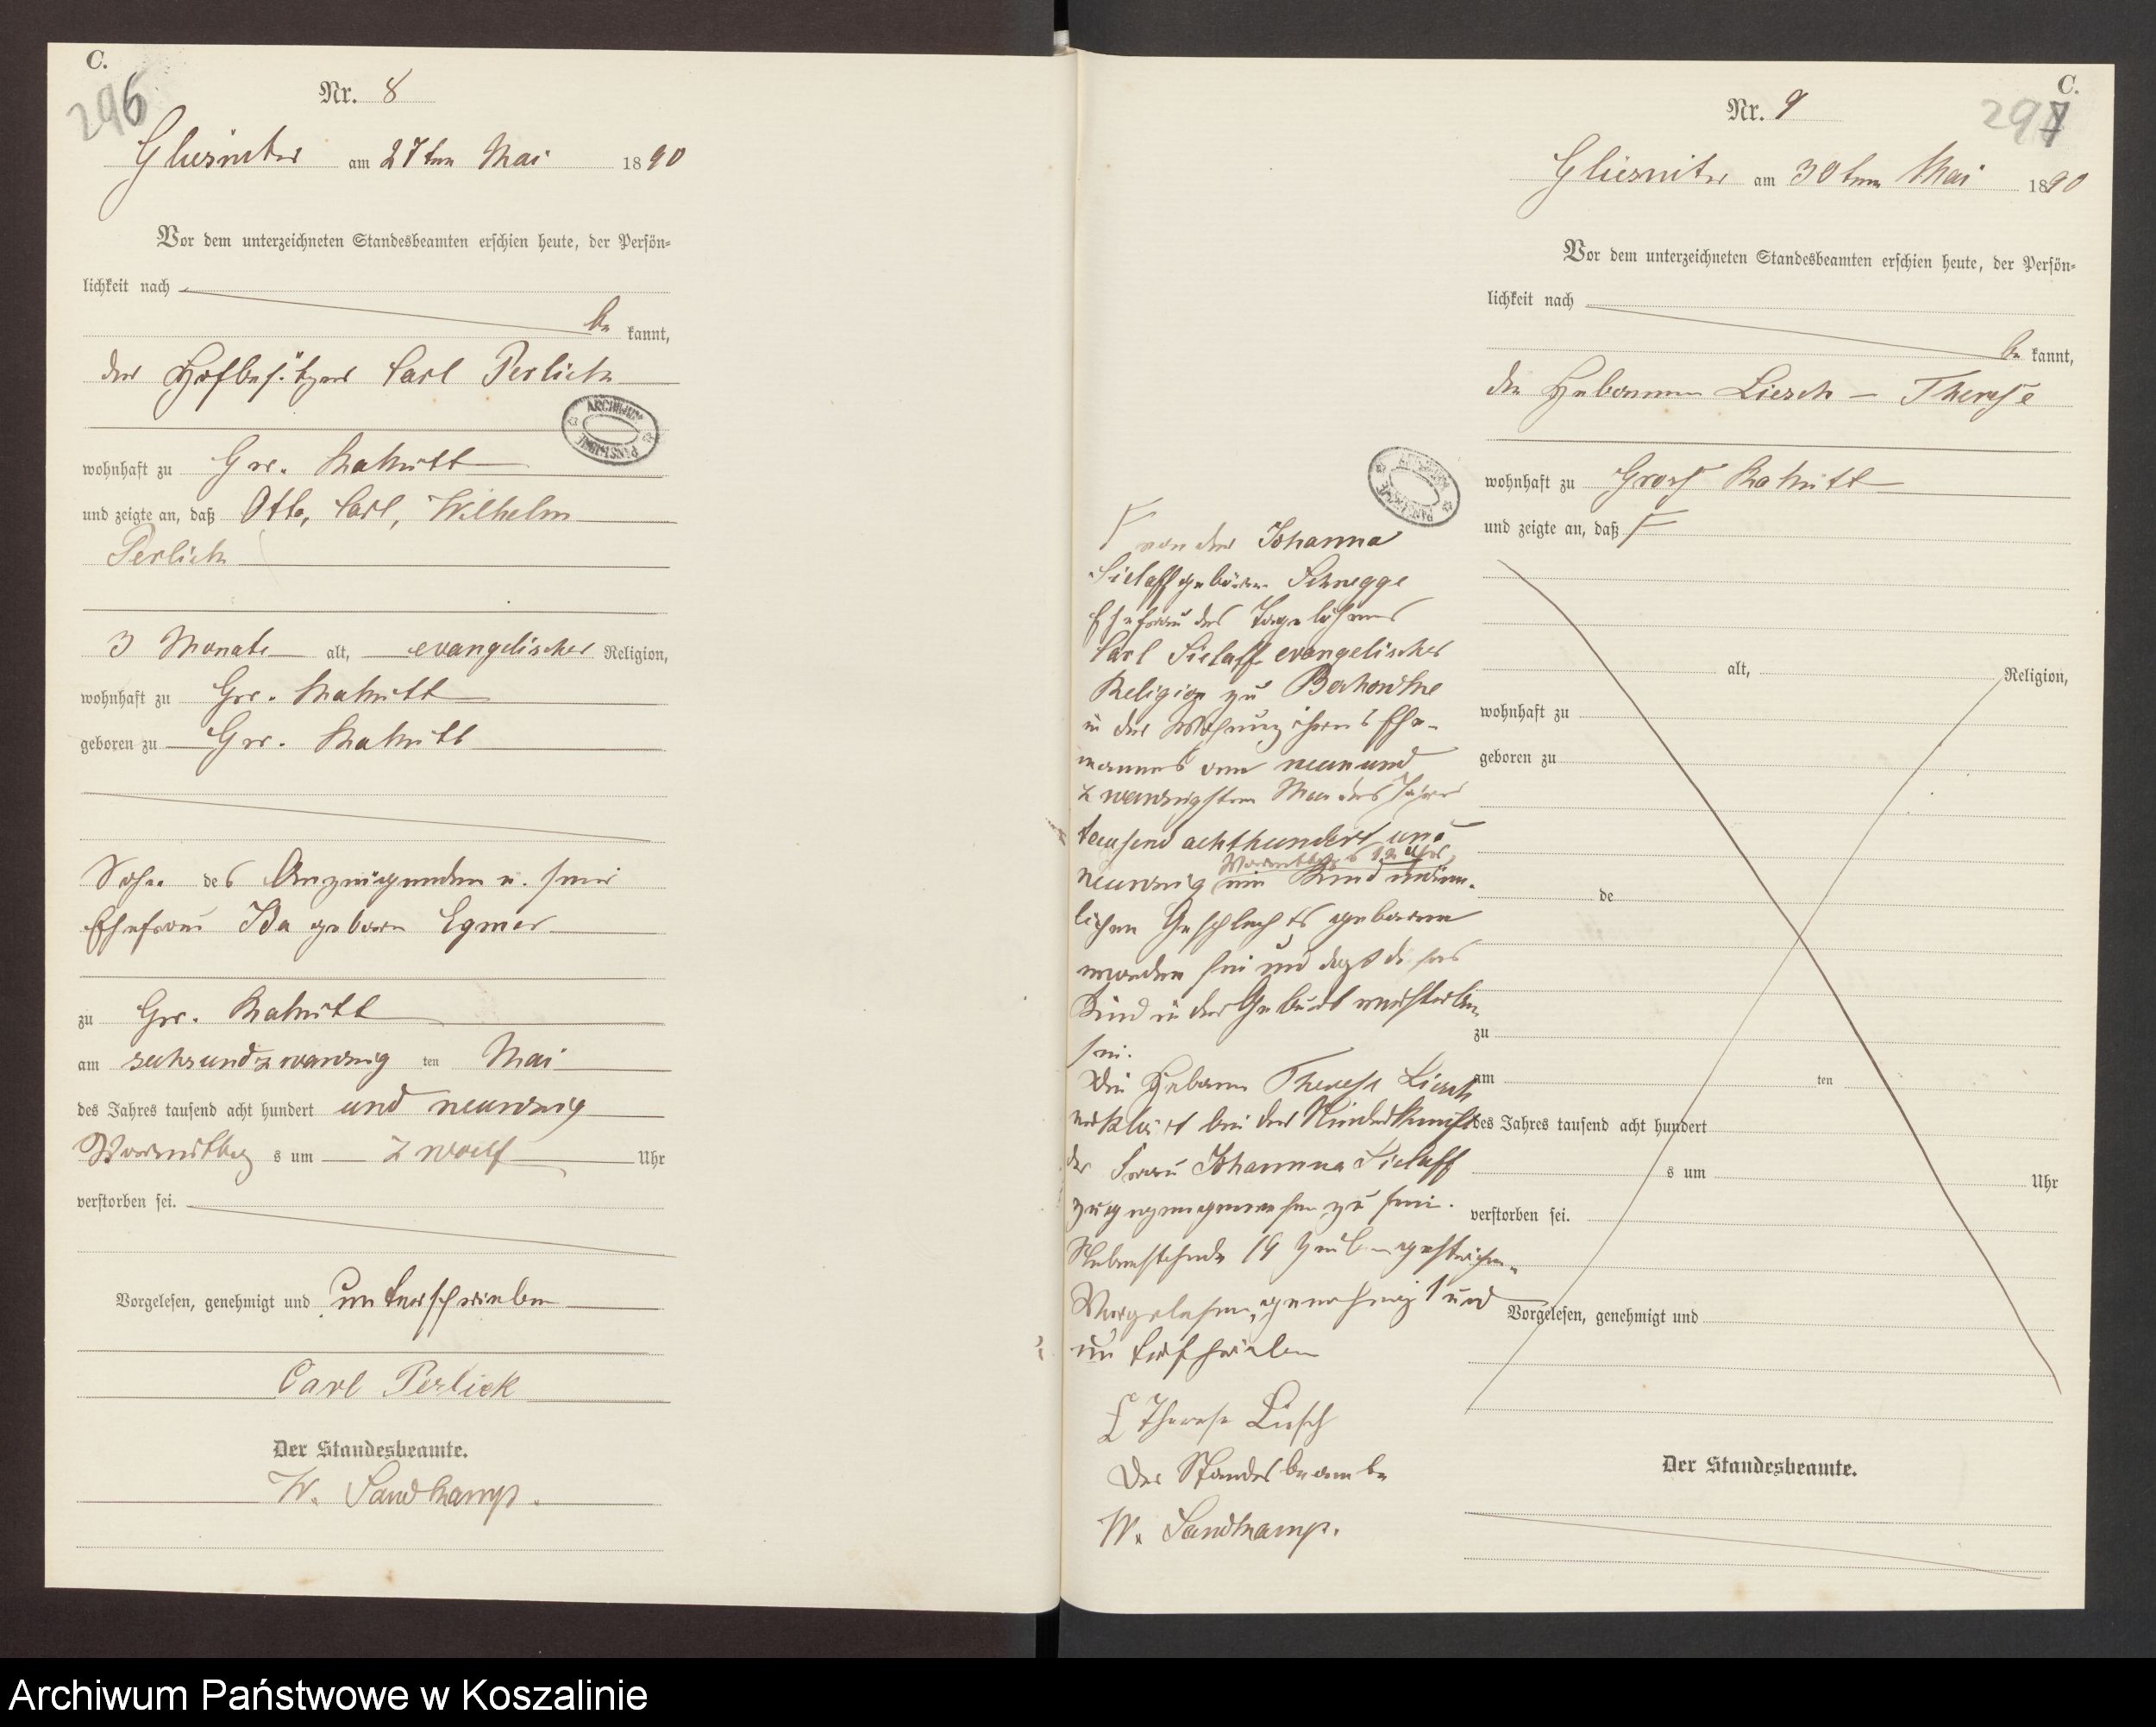 C.
296
Nr. 8
Gliesnitz am 27ten Mai 1890
Vor dem unterzeichneten Standesbeamten erschien heute, der Persön-
lichkeit nach
be kannt,
der Hofbesitzer Carl Perlick
ARCHIWUM PAŃSTWOWE
wohnhaft zu Gr.
und zeigte an, daß Otto, Carl, Wilhelm
Perlick
3 Monate alt, evangelischer Religion,
wohnhaft zu Gr.
geboren zu Gr.
Sohn des Anzeigenden u. seiner
Ehefrau Ida geborn
zu Gr.
am sechsundzwanzig ten Mai
des Jahres tausend acht hundert und neunzig
Vormittag s um zwoelf Uhr
verstorben sei.
Vorgelesen, genehmigt und unterschrieben
Carl Perlick
Der Standesbeamte.
W. Sandkamp.
C.
297
Nr. 9
Gliesnitz am 30ten Mai 1890
Vor dem unterzeichneten Standesbeamten erschien heute, der Persön-
lichkeit nach
be kannt,
die Hebamme Liesch – Therese
wohnhaft zu Gross
und zeigte an, daß
alt, Religion,
wohnhaft zu
geboren zu
de
zu
am ten
des Jahres tausend acht hundert
s um Uhr
verstorben sei.
Vorgelesen, genehmigt und
Der Standesbeamte.
von der Johanna
Sielaff geboren Schnegge
Ehefrau des Tagelöhners
Carl Sielaff evangelischer
Religion zu
in der Wohnung ihres Ehe-
mannes am neunund
zwanzigsten Mai des Jahres
tausend achthundert und
Vormittags 12 Uhr
neunzig ein Kind männ-
lichen Geschlechts geboren
worden sei und daß dieses
Kind in der Geburt verstorben
sei.
Die Hebamme Therese Liesch
erklärt bei der Niederkunft
der Frau Johanna Sielaff
zugegen gewesen zu sein.
Nebenstehende 19 Zeilen gestrichen.
Vorgelesen, genehmigt und
unterschrieben
Therese Liesch
Der Standesbeamte
W. Sandkamp.
Archiwum Państwowe w Koszalinie